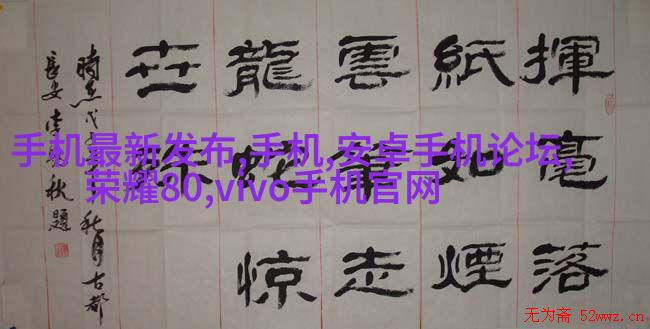 揮毫落
紙如煙
雲筆走
龍蛇惊
世
時在戊秋月古都
長安李秋題
手机最新发布,手机,安卓手机论坛,
荣耀80,vivo手机官网
无为斋 52wwz.cn